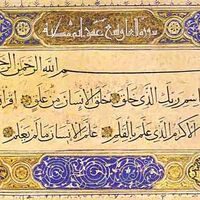 سورة العلق
بسم الله الرحمن الرحيم
باسم ربك الذي خلق خلق الإنسان من علق اقرأ
الأكرم الذي علم بالقلم علم الإنسان مالم يعلم